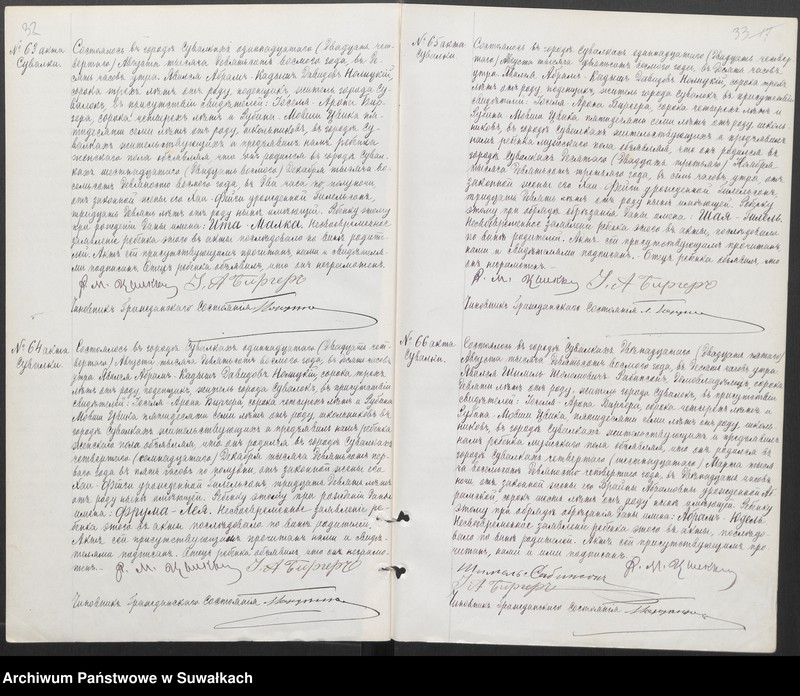 32
№ 63 акта
Сувалки.
Состоялось въ городѣ Сувалкахъ одиннадцатаго (Двадцать чет-
вертаго) Августа тысяча девятьсотъ восьмого года, въ де-
сять часовъ утра. Явился Абрамъ-Кадышъ Давидовъ
сорока трехъ лѣтъ отъ роду, житель города Су-
валокъ, въ присутствіи свидѣтелей: Госеля-Арона Бир-
гера, сорока четырехъ лѣтъ и Рубина-Мовши Цвика пя-
тидесяти семи лѣтъ отъ роду, школьниковъ, въ городѣ Су-
валкахъ жительствующихъ и предъявилъ намъ ребенка
женскаго пола объявляя, что онъ родился въ городѣ Сувал-
кахъ шестнадцатаго (Двадцать восьмого) Декабря тысяча во-
семьсотъ девяносто восьмого года, въ два часа по полуночи
отъ законной жены его Хаи-Фейги урожденной
тридцать девять лѣтъ отъ роду нынѣ имѣющей. Ребенку этому
при рожденіи дано имена: Ита-Малка. Несвоевременное
заявленіе ребенка этого въ акты послѣдовало по винѣ родите-
лей. Актъ сей присутствующимъ прочитанъ, нами и свидѣтеля-
ми подписанъ. Отецъ ребенка объявилъ, что онъ неграмотенъ.
Р. М. Цвикъ Г. А. Биргеръ
Чиновникъ Гражданскаго Состоянія
№ 64 акта
Сувалки.
Состоялось въ городѣ Сувалкахъ одиннадцатаго (Двадцать чет-
вертаго) Августа тысяча девятьсотъ восьмого года, въ десять часовъ
утра. Явился Абрамъ-Кадышъ Давидовъ сорока трехъ
лѣтъ отъ роду, житель города Сувалокъ, въ присутствіи
свидѣтелей: Госеля-Арона Биргера, сорока четырехъ лѣтъ и Рубина-
Мовши Цвика пятидесяти семи лѣтъ отъ роду, школьниковъ въ
городѣ Сувалкахъ жительствующихъ и предъявилъ намъ ребенка
женскаго пола объявляя, что онъ родился въ городѣ Сувалкахъ
четвертаго (семнадцатаго) Декабря тысяча девятьсотъ пер-
ваго года въ пять часовъ по полудни, отъ законной жены его
Хаи-Фейги урожденной тридцать девять лѣтъ
отъ роду нынѣ имѣющей. Ребенку этому при рожденіи даны
имена: Фрума-Лея. Несвоевременное заявленіе ре-
бенка этого въ акты послѣдовало по винѣ родителей.
Актъ сей присутствующимъ прочитанъ нами и свидѣ-
телями подписанъ. Отецъ ребенка объявилъ что онъ неграмо-
тенъ. Р. М. Цвикъ Г. А. Биргеръ
Чиновникъ Гражданскаго Состоянія
33
№ 65 акта
Сувалки
Состоялось въ городѣ Сувалкахъ одиннадцатаго (Двадцать четвер-
таго) Августа тысяча девятьсотъ восьмого года, въ десять часовъ
утра. Явился Абрамъ-Кадышъ Давидовъ сорока трехъ
лѣтъ отъ роду, житель города Сувалокъ, въ присутствіи
свидѣтелей: Госеля-Арона Биргера, сорока четырехъ лѣтъ и
Рубина-Мовши Цвика пятидесяти семи лѣтъ отъ роду, школь-
никовъ, въ городѣ Сувалкахъ жительствующихъ и предъявилъ
намъ ребенка мужескаго пола объявляя, что онъ родился въ
городѣ Сувалкахъ десятаго (Двадцать третьяго) Ноября
тысяча девятьсотъ третьяго года, въ семь часовъ утра отъ
законной жены его Хаи-Фейги урожденной
тридцать девять лѣтъ отъ роду нынѣ имѣющей. Ребенку
этому при обрядѣ обрѣзанія даны имена: Шая-
Несвоевременное заявленіе ребенка этого въ акты, послѣдовало
по винѣ родителей. Актъ сей присутствующимъ прочитанъ,
нами и свидѣтелями подписанъ. Отецъ ребенка объявилъ, что
онъ неграмотенъ.
Р. М. Цвикъ Г. А. Биргеръ
Чиновникъ Гражданскаго Состоянія
№ 66 акта
Сувалки.
Состоялось въ городѣ Сувалкахъ двѣнадцатаго (Двадцать пятаго)
Августа тысяча девятьсотъ восьмого года, въ десять часовъ утра.
Явился сорока
девяти лѣтъ отъ роду, житель города Сувалокъ, въ присутствіи
свидѣтелей: Госеля-Арона Биргера, сорока четырехъ лѣтъ и
Рубина-Мовши Цвика, пятидесяти семи лѣтъ отъ роду, школь-
никовъ, въ городѣ Сувалкахъ жительствующихъ и предъявилъ
намъ ребенка мужескаго пола объявляя, что онъ родился въ
городѣ Сувалкахъ четвертаго (шестнадцатаго) Марта тыся-
ча восемьсотъ девяносто четвертаго года, въ двѣнадцать часовъ
ночи отъ законной жены его урожденной
сорока шести лѣтъ отъ роду нынѣ имѣющей. Ребенку
этому при обрядѣ обрѣзанія даны имена: Абрамъ-Юдель.
Несвоевременное заявленіе ребенка этого въ акты, послѣдо-
вало по винѣ родителей. Актъ сей присутствующимъ про-
читанъ, нами и ими подписанъ.
Р. М. Цвикъ
Г. А. Биргеръ
Чиновникъ Гражданскаго Состоянія
Archiwum Państwowe w Suwałkach